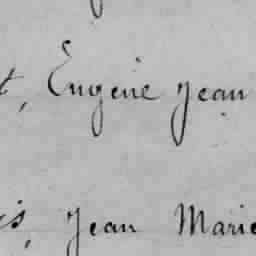 t, Eugène Jean
is, Jean Marie